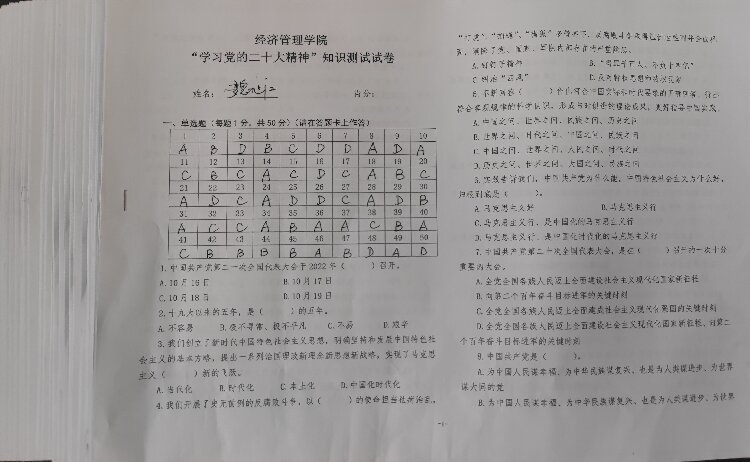 经济管理学院
“学习党的二十大精神”知识测试试卷
姓名：
得分：
一、单选题（每题1分，共50分）（请在答题卡上作答）
1 2 3 4 5 6 7 8 9 10
A B D B C D D A D A
11 12 13 14 15 16 17 18 19 20
C B C A C D C A B C
21 22 23 24 25 26 27 28 29 30
A D C A D D C A D B
31 32 33 34 35 36 37 38 39 40
A C C A B A A C B A
41 42 43 44 45 46 47 48 49 50
C B B B A B D A D
1.中国共产党第二十次全国代表大会于2022年（ ）召开。
A.10月16日 B.10月17日
C.10月18日 D.10月19日
2.十九大以来的五年，是（ ）的五年。
A.不容易 B.极不寻常、极不平凡 C.不易 D.艰辛
3.我们创立了新时代中国特色社会主义思想，明确坚持和发展中国特色社
会主义的基本方略，提出一系列治国理政新理念新思想新战略，实现了马克思
主义（ ）新的飞跃。
A.当代化 B.时代化 C.本土化 D.中国化时代化
4.我们开展了史无前例的反腐败斗争，以（ ）的使命担当祛疴治乱，
“打虎”、“拍蝇”、“猎狐”
A.钉钉子精神 B.“得罪千百人、不负十四亿”
C.纠治“四风”
A.中国之问、世界之问、人民之问、历史之问
B.世界之问、时代之问、中国之问、民族之问
C.中国之问、世界之问、人民之问、时代之问
6.实践告诉我们，中国共产党为什么能，中国特色社会主义为什么好，
归根到底是（ ）。
A.马克思主义好 B.马克思主义行
C.马克思主义行，是中国化的马克思主义行
D.马克思主义行，是中国化时代化的马克思主义行
7.中国共产党第二十次全国代表大会，是在（ ）召开的一次十分
重要的大会。
A.全党全国各族人民迈上全面建设社会主义现代化国家新征程
B.向第二个百年奋斗目标进军的关键时刻
C.全党全国各族人民迈上全面建成社会主义现代化强国的关键时刻
D.全党全国各族人民迈上全面建设社会主义现代化国家新征程、向第二
个百年奋斗目标进军的关键时刻
8.中国共产党是（ ）。
A.为中国人民谋幸福、为中华民族谋复兴，也是为人类谋进步、为世界
谋大同的党
B.为中国人民谋幸福、为中华民族谋复兴，也是为人类谋进步、为世界